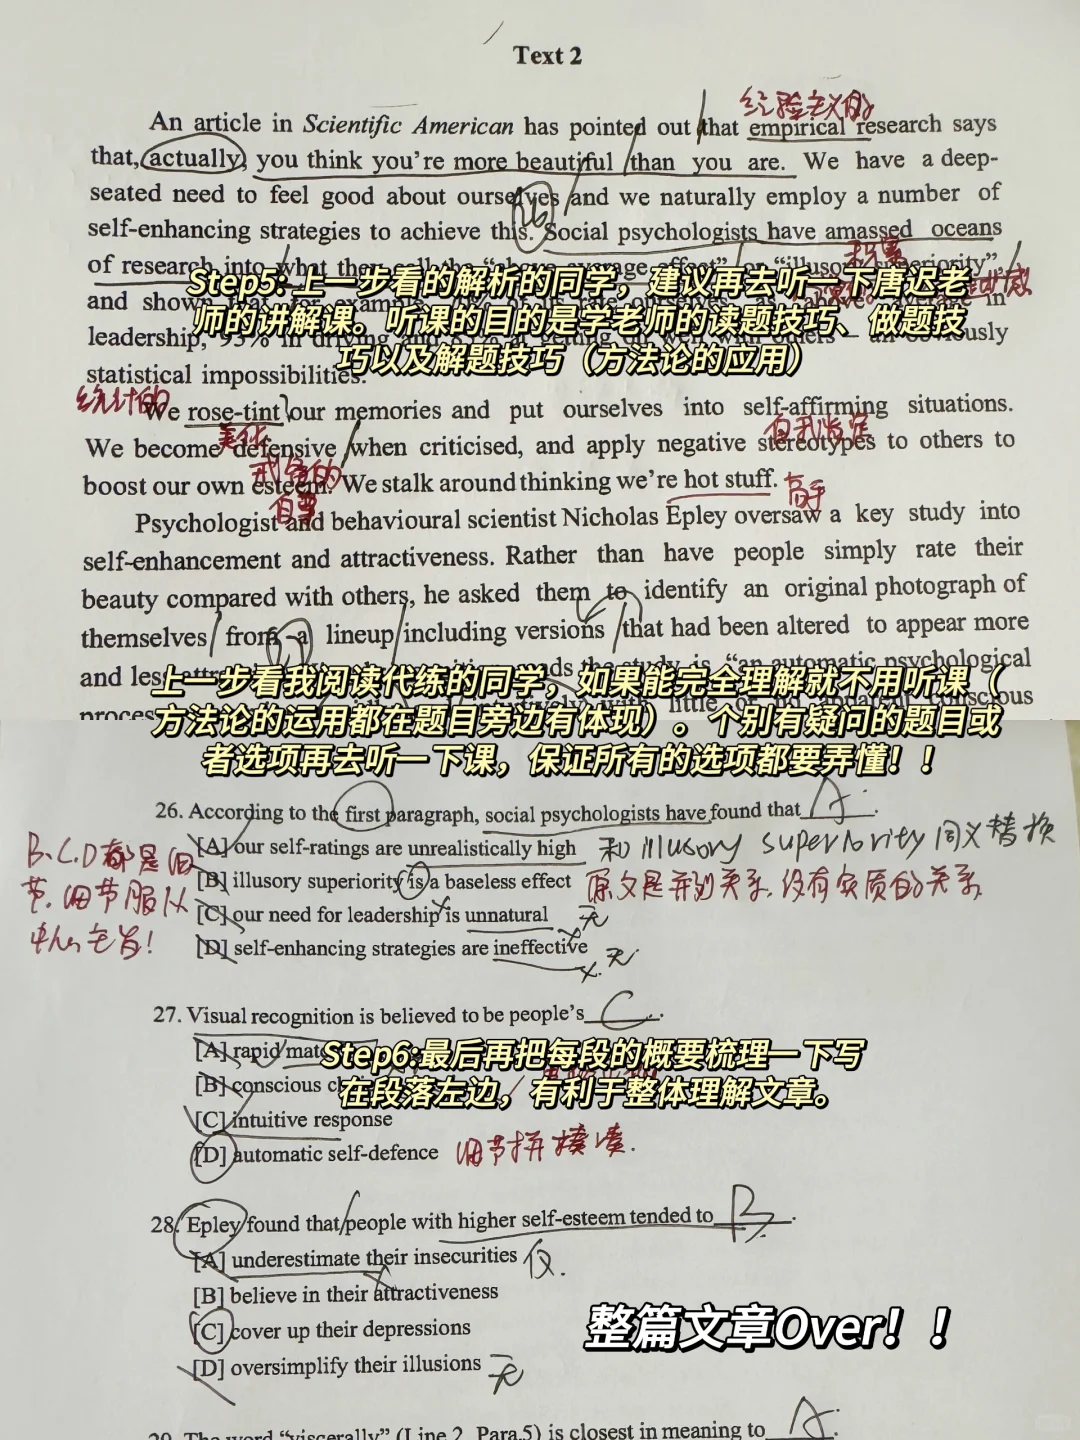 Text 2
经验主义的
An article in Scientific American has pointed out that empirical research says
that, actually, you think you're more beautiful than you are. We have a deep-
seated need to feel good about ourselves and we naturally employ a number of
self-enhancing strategies to achieve this. Social psychologists have amassed oceans
积累
of research into what they call the "above average effect", or "illusory superiority",
Step5: 上一步看的解析的同学，建议再去听一下唐迟老
师的讲解课。听课的目的是学老师的读题技巧、做题技
巧以及解题技巧（方法论的应用）
and shown that, for example, 70% of us rate ourselves as above average in
leadership, 93% in driving and 85% at getting on well with others – all obviously
statistical impossibilities.
统计的
We rose-tint our memories and put ourselves into self-affirming situations.
美化
We become defensive when criticised, and apply negative stereotypes to others to
戒备的
boost our own esteem. We stalk around thinking we're hot stuff.
自尊
高手
Psychologist and behavioural scientist Nicholas Epley oversaw a key study into
self-enhancement and attractiveness. Rather than have people simply rate their
beauty compared with others, he asked them to identify an original photograph of
themselves from a lineup including versions that had been altered to appear more
and less the study is "an automatic psychological
process with little or no apparent conscious
上一步看我阅读代练的同学，如果能完全理解就不用听课（
方法论的运用都在题目旁边有体现）。个别有疑问的题目或
者选项再去听一下课，保证所有的选项都要弄懂！！
26. According to the first paragraph, social psychologists have found that A.
[A] our self-ratings are unrealistically high 和 illusory superiority 同义替换
[B] illusory superiority is a baseless effect 原文是并列关系，没有实质的关系
[C] our need for leadership is unnatural 无
[D] self-enhancing strategies are ineffective 无
B、C、D都是细
节，细节服从
中心主旨！
27. Visual recognition is believed to be people's C.
[A] rapid
[B] conscious
[C] intuitive response
[D] automatic self-defence 细节拼凑
Step6:最后再把每段的概要梳理一下写
在段落左边，有利于整体理解文章。
28. Epley found that people with higher self-esteem tended to B.
[A] underestimate their insecurities 仅.
[B] believe in their attractiveness
[C] cover up their depressions
[D] oversimplify their illusions 无
整篇文章Over！！
29. The word "viscerally" (Line 2, Para.5) is closest in meaning to A.